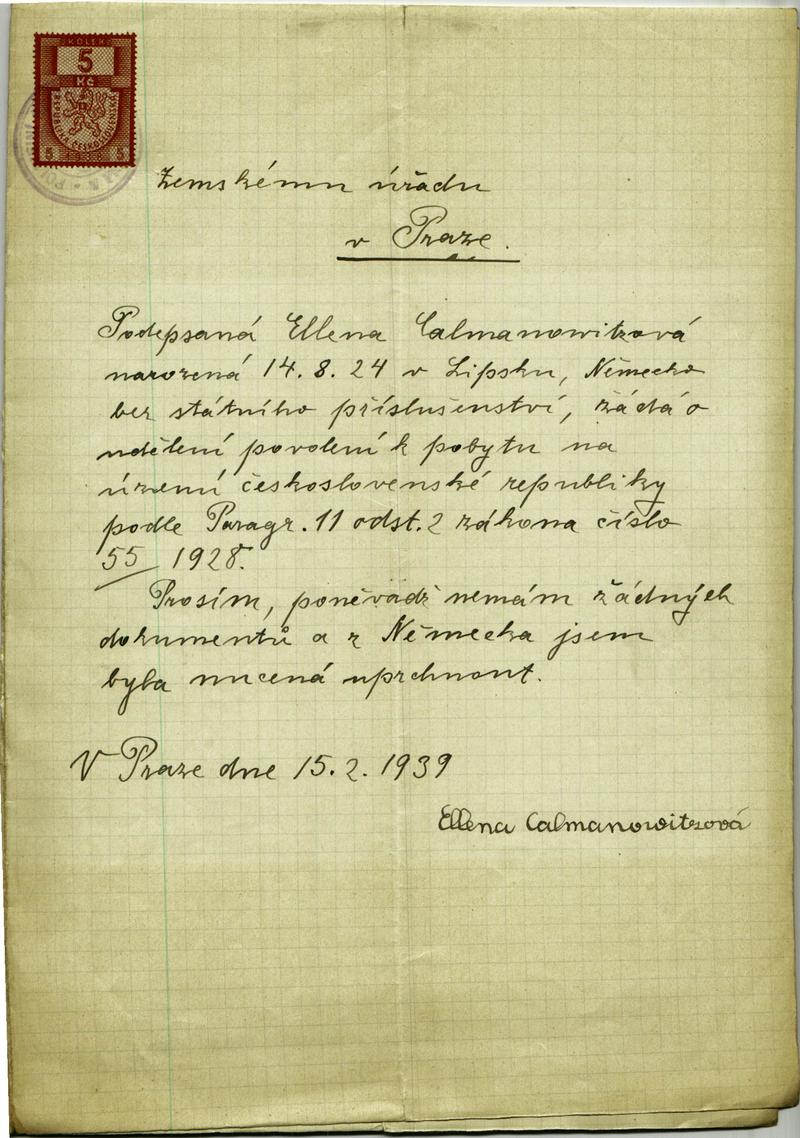 KOLEK
5
Kč
REPUBLIKA ČESKOSLOVENSKÁ
5 5
Zemskému úřadu
v Praze.
Podepsaná Ellena Calmanowitzová
narozená 14. 8. 24 v Lipsku, Německo
bez státního příslušenství, žádá o
udělení povolení k pobytu na
území československé republiky
podle Paragr. 11 odst. 2 zákona číslo
55/1928.
Prosím, poněvadž nemám žádných
dokumentů a z Německa jsem
byla nucená uprchnout.
V Praze dne 15. 2. 1939
Ellena Calmanowitzová